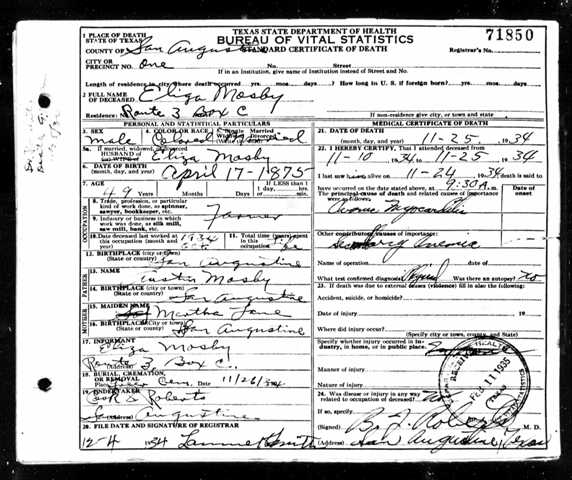 TEXAS STATE DEPARTMENT OF HEALTH
BUREAU OF VITAL STATISTICS
STANDARD CERTIFICATE OF DEATH
71850
Registrar's No.
1 PLACE OF DEATH
STATE OF TEXAS
COUNTY OF San Augustine
CITY OR PRECINCT NO. One
No. Street
If in an Institution, give name of Institution instead of Street and No.
Length of residence in city where death occurred yrs. mos. days. How long in U. S. if foreign born? yrs. mos. days
2 FULL NAME OF DECEASED Eliza Mosby
Residence: Route 3 Box C
If non-residence give city, or town, county and state
PERSONAL AND STATISTICAL PARTICULARS
3. SEX
Male
4. COLOR OR RACE
Colored
5. Single Married Widowed Divorced
Married
5a. If married, widowed, or divorced
HUSBAND OF
or WIFE OF
Eliza Mosby
6. DATE OF BIRTH
(month, day, year)
April 17-1875
7. AGE
49 Years Months Days
If LESS than 1 day, hrs. min.
OCCUPATION
8. Trade, profession, or particular kind of work done, as spinner, sawyer, bookkeeper, etc.
Farmer
9. Industry or business in which work was done, as silk mill, saw mill, bank, etc.
10. Date deceased last worked at this occupation (month and year)
1934
11. Total time (years) spent in this occupation
12. BIRTHPLACE (city or town)
(State or country)
San Augustine
FATHER
13. NAME
Mosby
14. BIRTHPLACE (city or town)
(State or country)
San Augustine
MOTHER
15. MAIDEN NAME
Martha Jane
16. BIRTHPLACE (city or town)
(State or country)
San Augustine
17. INFORMANT
Eliza Mosby
(Address)
Route 3 Box C.
18. BURIAL, CREMATION, OR REMOVAL
Cem. Date 11/26/34
19. UNDERTAKER
Cook & Roberts
(Address)
San Augustine
20. FILE DATE AND SIGNATURE OF REGISTRAR
12-4 1934
Smith
MEDICAL CERTIFICATE OF DEATH
21. DATE OF DEATH
(month, day, year) 11-25 1934
22. I HEREBY CERTIFY, That I attended deceased from
11-10 1934 to 11-25 1934
I last saw him alive on 11-24 1934 death is said to
have occurred on the date stated above, at 9:30 A. m.
The principal cause of death and related causes of importance were as follows:
Date of onset
Chronic Myocarditis
Other contributory causes of importance:
Secondary Anemia
Name of operation Date of
What test confirmed diagnosis Physical Was there an autopsy? No
23. If death was due to external causes (violence) fill in also the following:
Accident, suicide, or homicide?
Date of injury 19
Where did injury occur?
(Specify city or town, county, and State)
Specify whether injury occurred in industry, in home, or in public place.
Manner of injury
Nature of injury
24. Was disease or injury in any way related to occupation of deceased? No
If so, specify
(Signed) M. D.
(Address) San Augustine, Texas
RECEIVED
FEB 11 1935
TEXAS